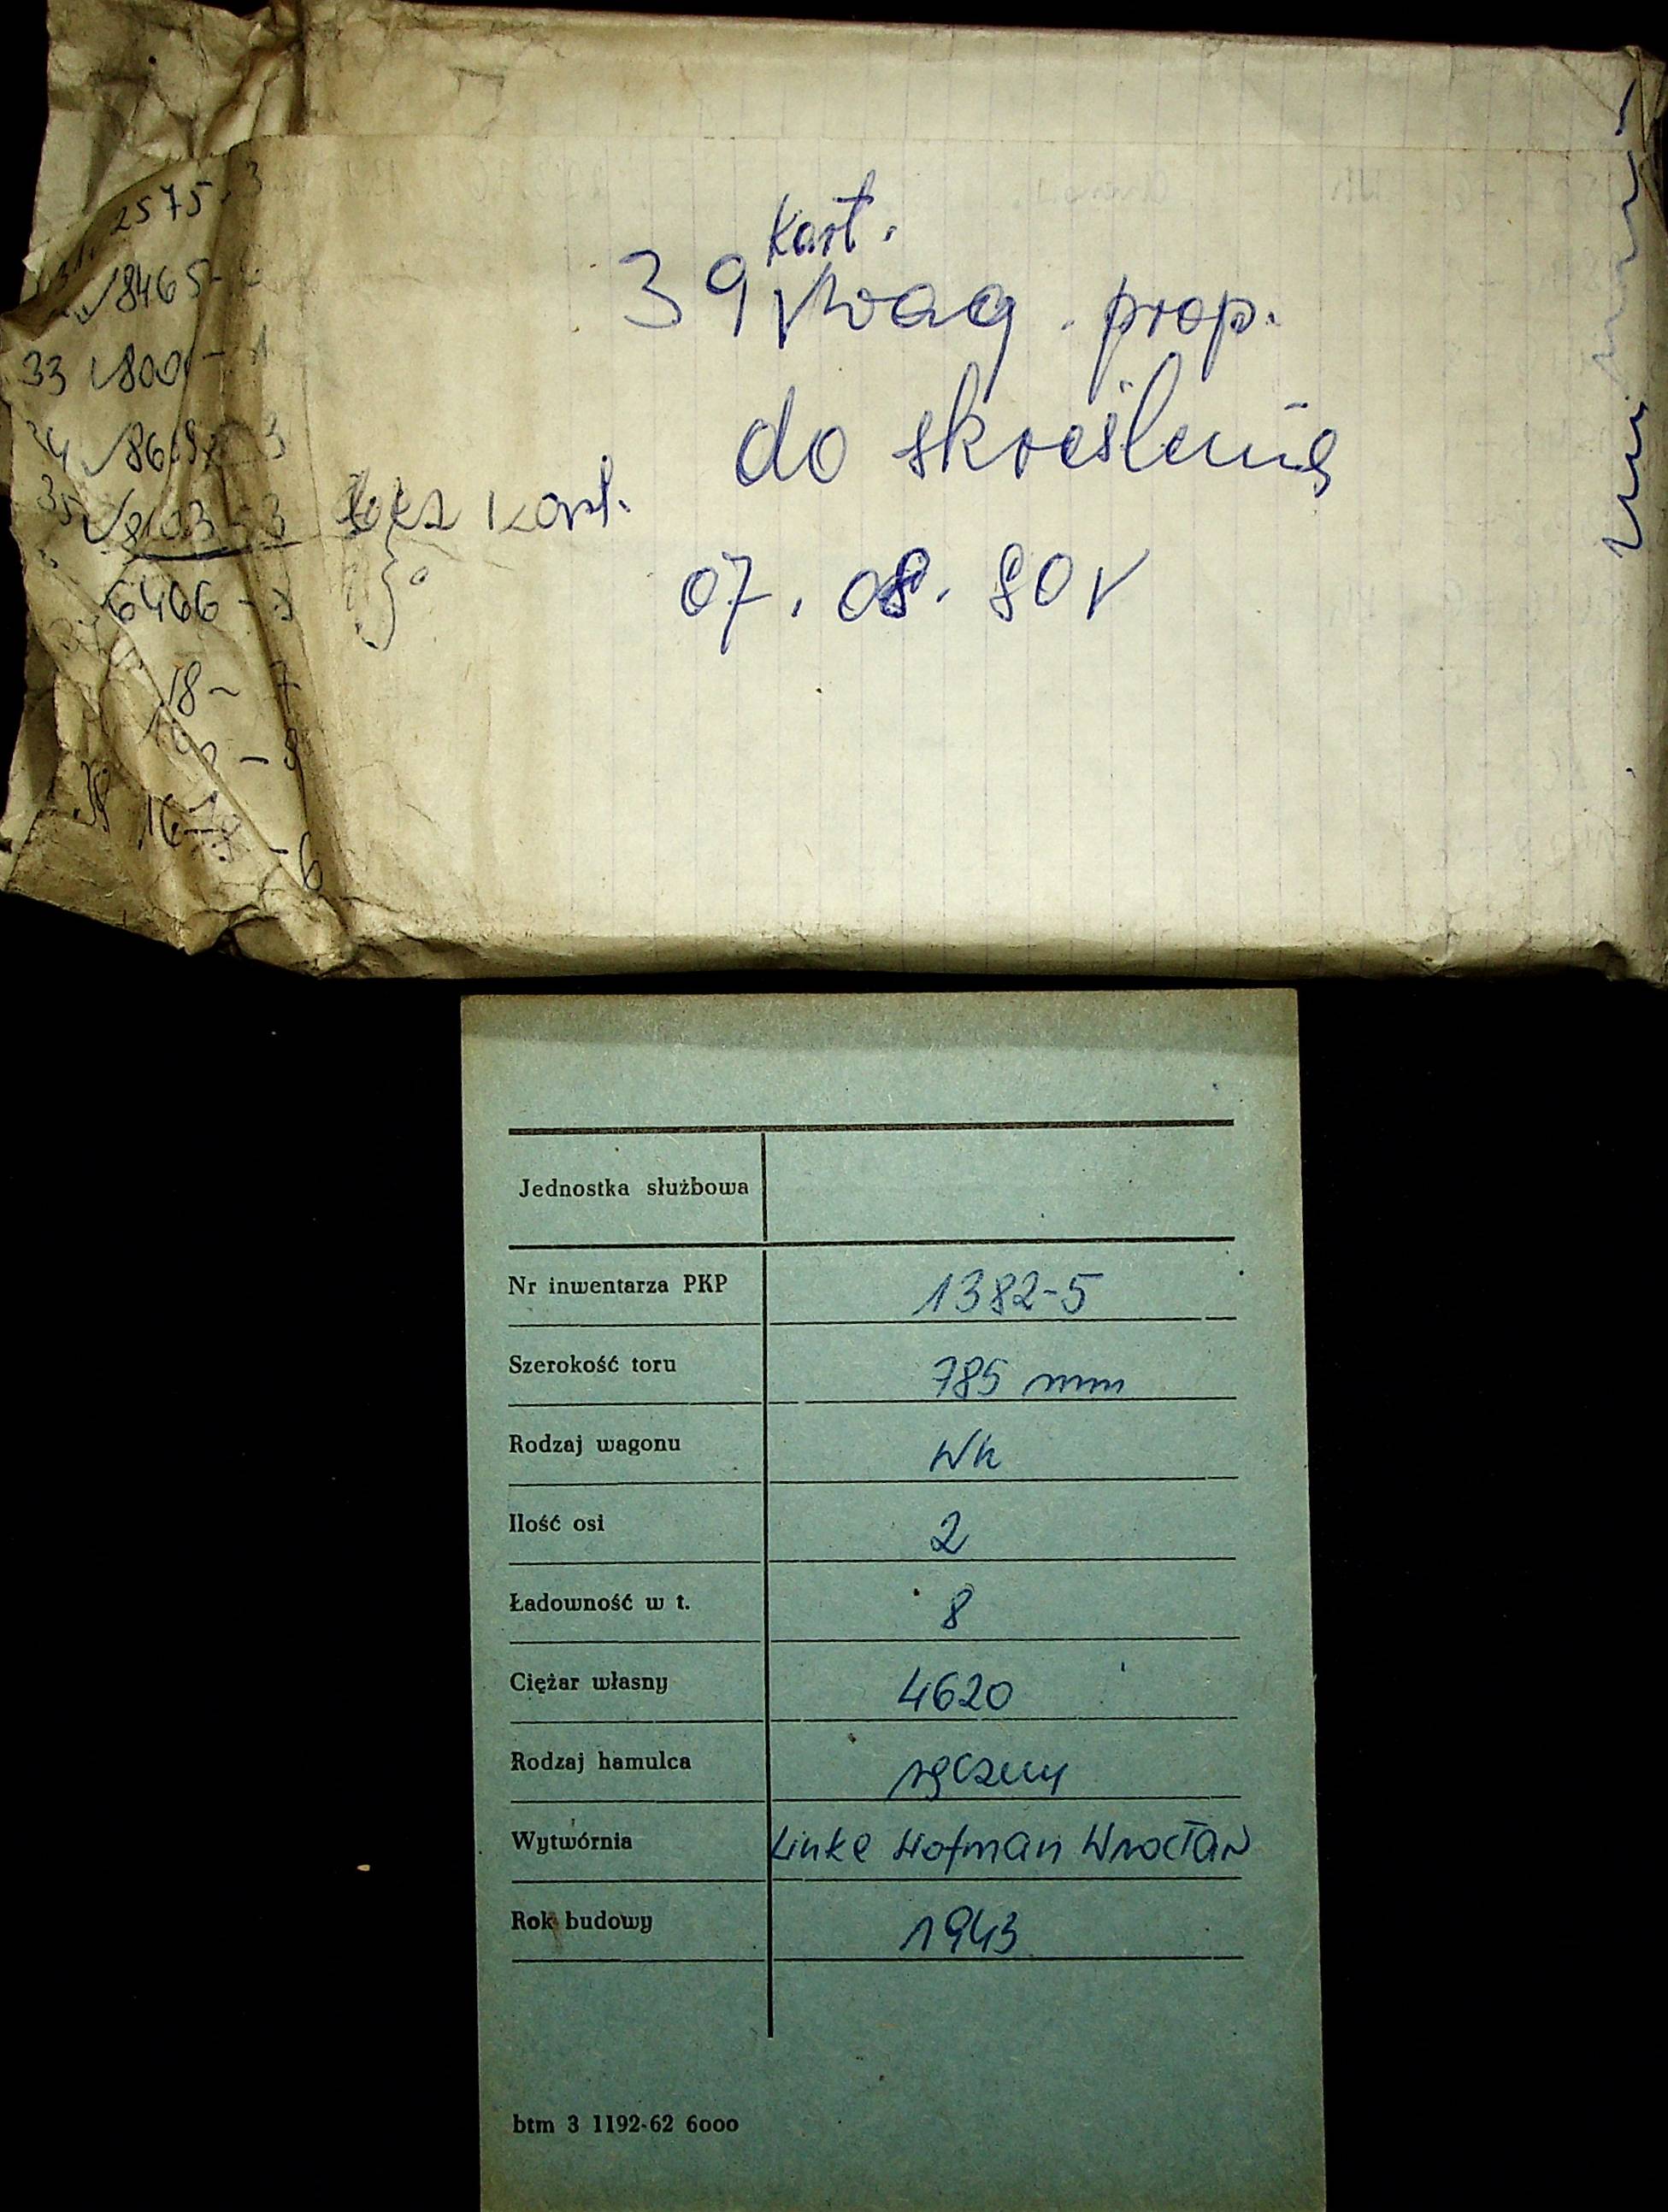 2575-3
8465-
33 800 - 1
8103-3
6466 -
18- 7
16-
-6
Kart.
39 wag. prop.
do skreślenia
bez kart.
07.08.80r
Jednostka służbowa
Nr inwentarza PKP 1382-5
Szerokość toru 785 mm
Rodzaj wagonu Wk
Ilość osi 2
Ładowność w t. 8
Ciężar własny 4620
Rodzaj hamulca ręczny
Wytwórnia Linke Hofman Wrocław
Rok budowy 1943
btm 3 1192-62 6000